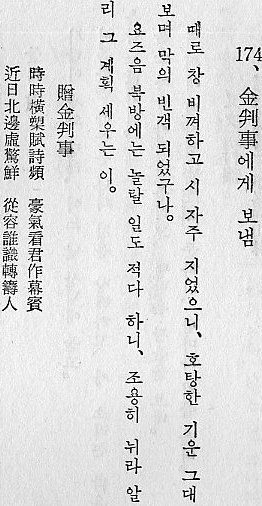 174、金判事에게 보냄
때로 창 비껴하고 시 자주 지었으니、호탕한 기운 그대
보며 막의 빈객 되었구나。
요즈음 북방에는 놀랄 일도 적다 하니、조용히 뉘라 알
리 그 계획 세우는 이。
贈金判事
時時横槊賦詩頻 豪氣看君作幕賓
近日北邊虛驚鮮 從容誰識轉籌人